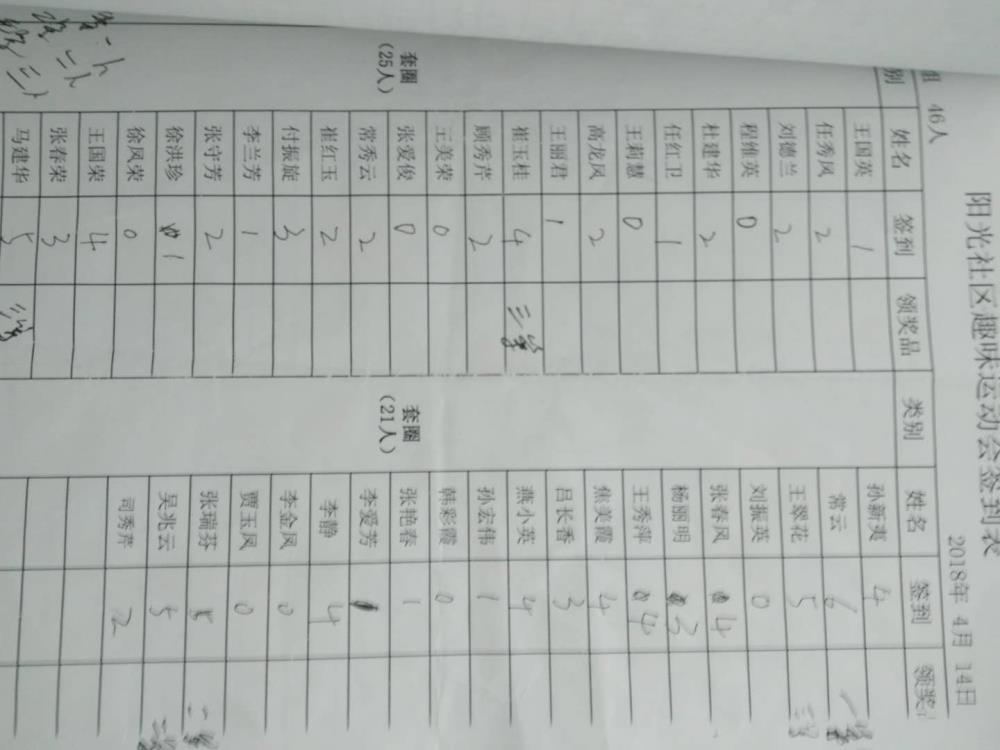 阳光社区趣味运动会签到表
2018年 4月 14日
组 46人
别 姓名 签到 领奖品 类别 姓名 签到 领奖
套圈
(25人)
套圈
(21人)
王国英 1 孙新夷 4
任秀凤 2 常云 6 一等
刘德兰 2 王翠花 5 二等
程维英 0 刘振英 0
杜建华 2 张春风 4
任红卫 1 杨丽明 3
王莉慧 0 王秀萍 4
高龙凤 2 焦美霞 4
王丽君 1 吕长香 3
崔玉桂 4 三等 燕小英 4
顾秀芹 2 孙宏伟 1
王美荣 0 韩彩霞 0
张爱俊 0 张艳春 1
常秀云 2 李爱芳 1
崔红玉 2 李静 4
付振旋 3 李金凤 0
李兰芳 1 贾玉凤 0
张守芳 2 张瑞芬 5 二等
徐洪珍 1 吴兆云 5 二等
徐凤荣 0 司秀芹 2
王国荣 4
张春荣 3
马建华 5